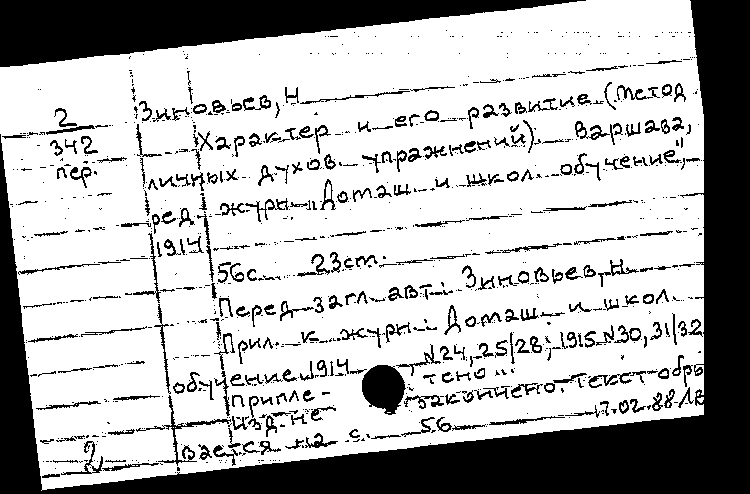 2
342
пер.
Зиновьев, Н
Характер и его развитие (Метод
личных духов. упражнений). Варшава,
ред. журн. „Домаш. и школ. обучение",
1914
56с. 23cm.
Перед загл. авт.: Зиновьев, Н.
Прил. к журн.: Домаш. и школ.
обучение. 1914, N24, 25/28; 1915 N30, 31/32
Припле- тено...
Изд. не закончено. Текст обры
вается на с. 56
17.02.88
2